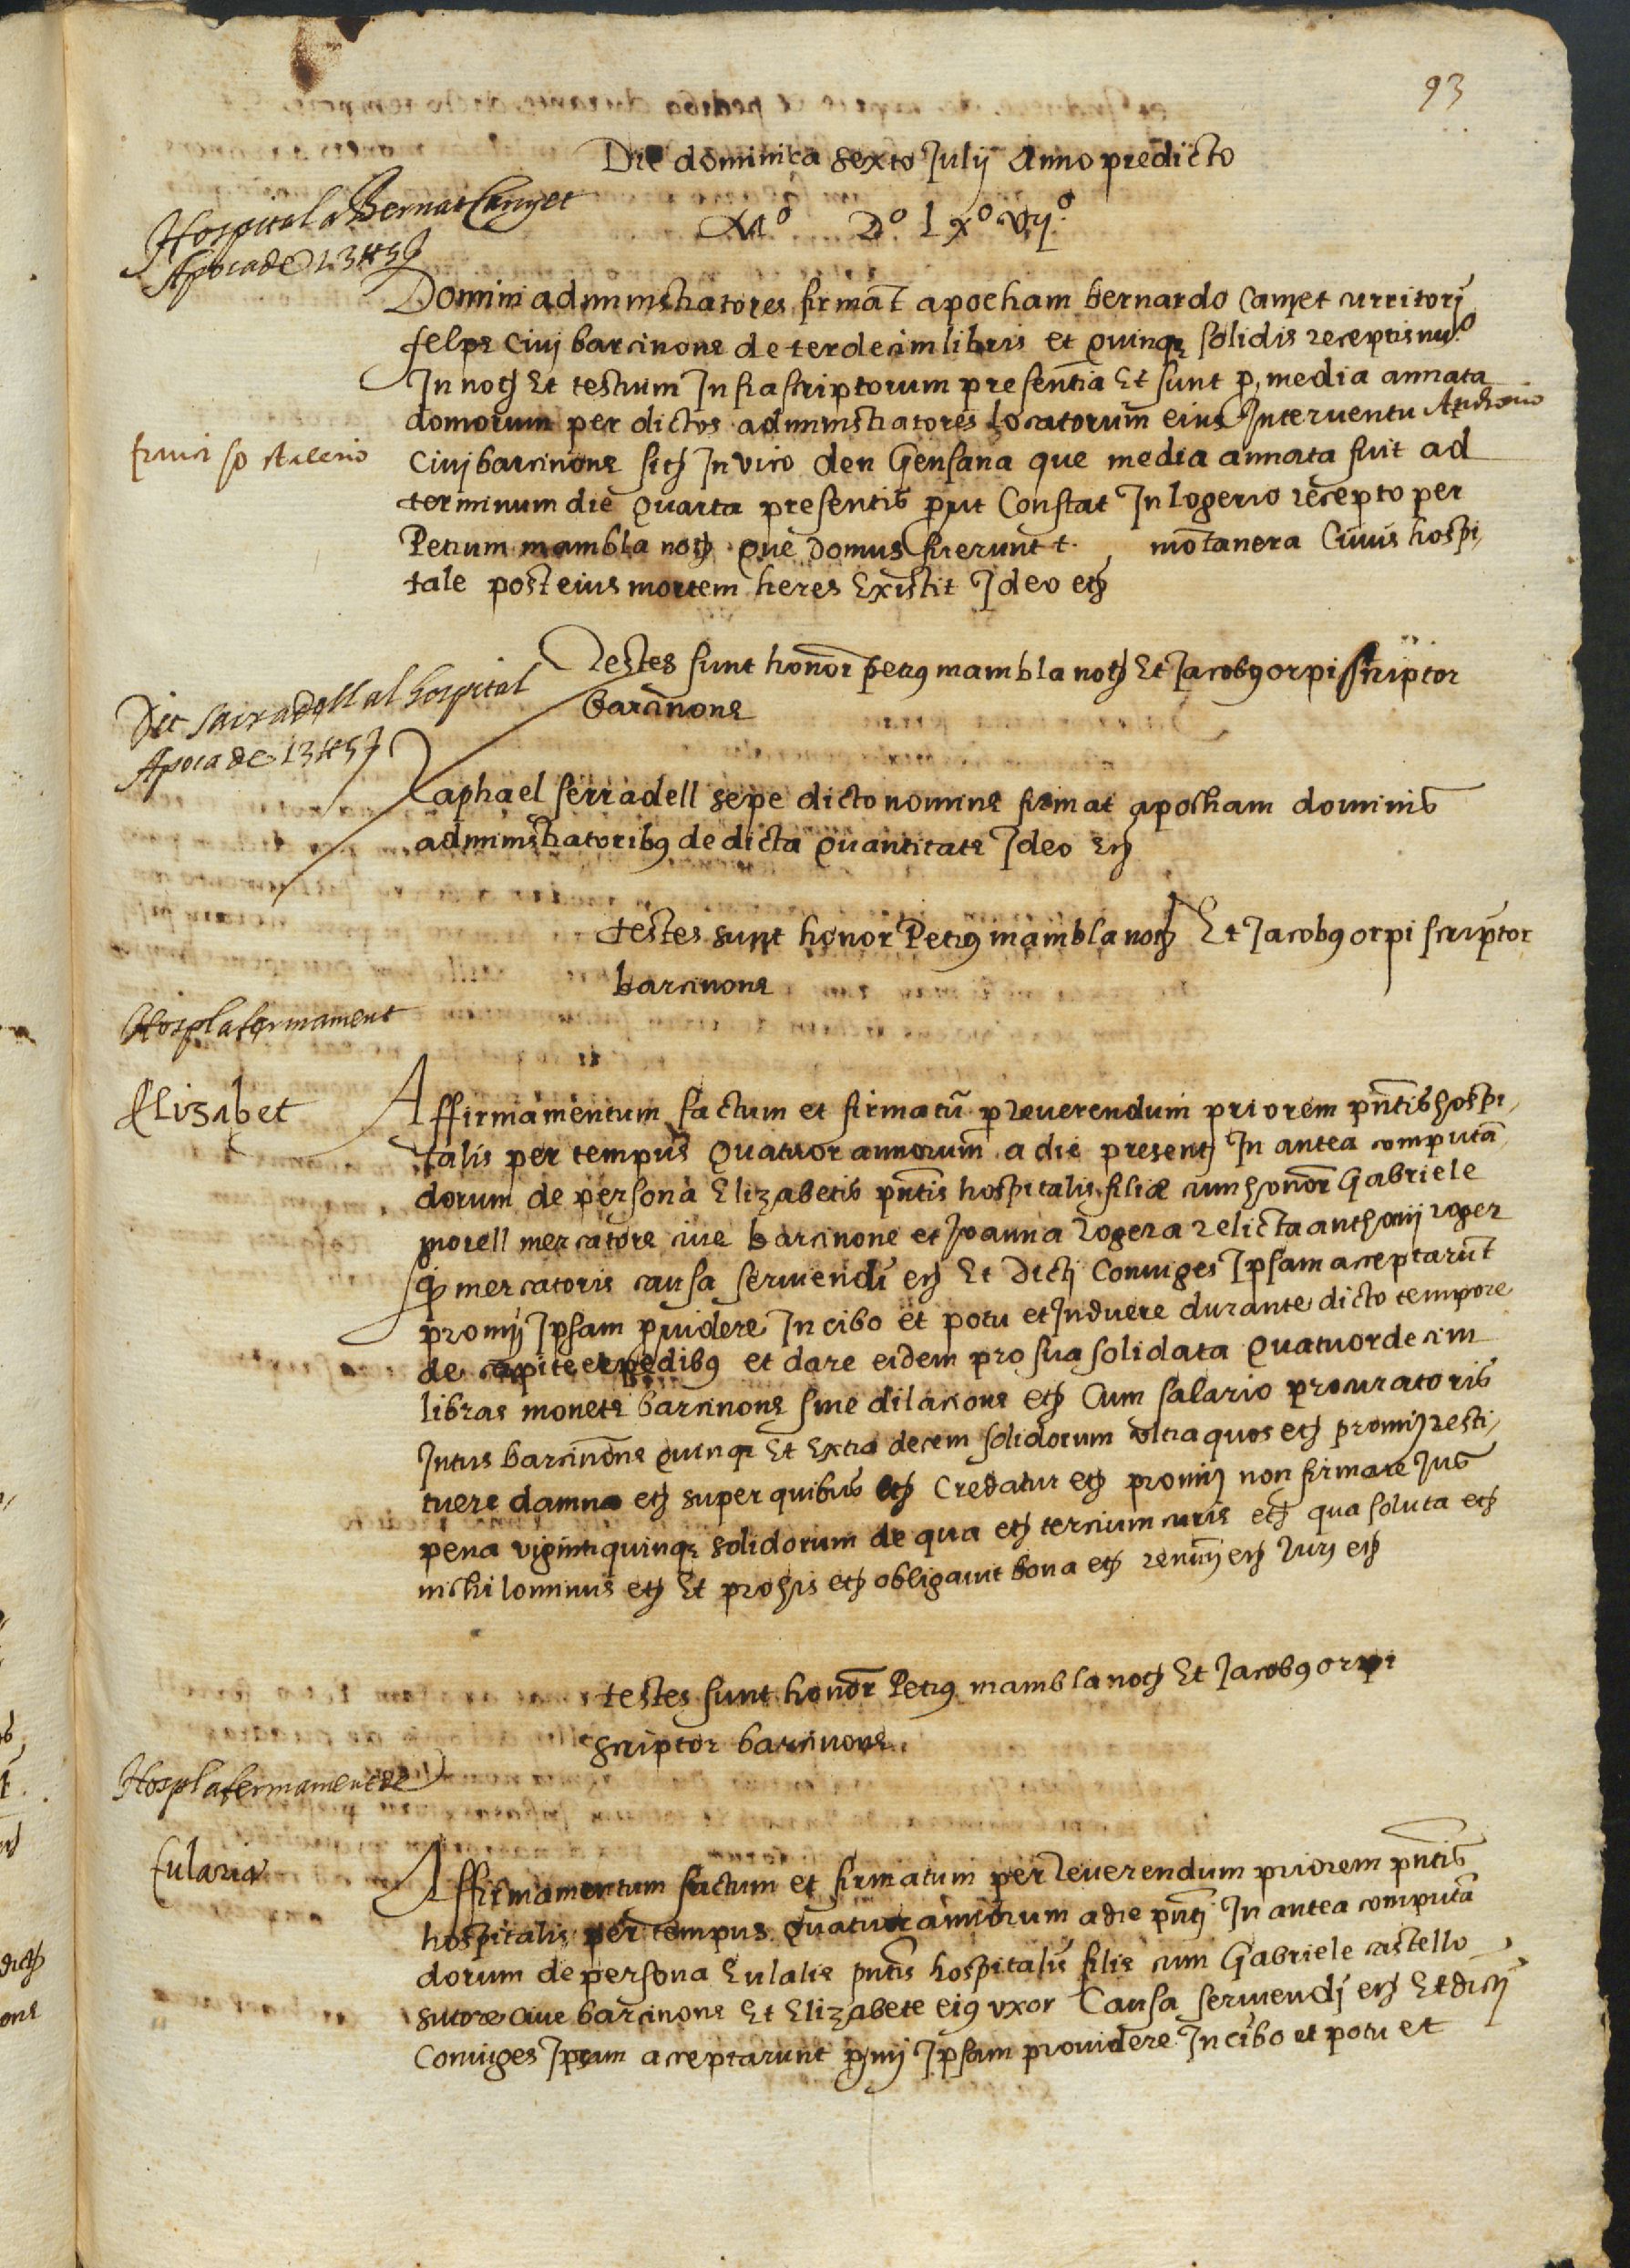 93
Die dominica sexto Julij Anno predicto
Mº Dº lxº vijº
Hospital a Bernat Canyet
Apoca de 13 ℔ 5 ß
Domini administratores firmat apocham bernardo Canyet curritorj
felpe Civj barcinone de terdecim libris et quinqz solidis receptis nuº
In notz Et testium Infrascriptorum presentia Et sunt p media annata
domorum per dictos administratores locatorum eius Interuentu Anthonio
francisco
Civj barcinone sitz In vico den Gensana que media annata fuit ad
terminum die quarta presentis put Constat In logerio recepto per
Petrum mambla notz que domus fuerunt t. mõtanera Cuius hospi,
tale post eius mortem heres Existit Ideo etz
Testes sunt honor petrus mambla notz Et Jacobus orpi scriptor
barcinone
Dit sarradell al hospital
Apoca de 13 ℔ 5 ß
Raphael serradell sepe dicto nomine firmat apocham dominis
administratoribus de dicta quantitate Ideo etz
testes sunt honor Petrus mambla notz Et Jacobus orpi scriptor
barcinone
Hospl afermament
Elisabet
Affirmamentum factum et firmatũ p reuerendum priorem pñtis hospi,
talis per tempus quatuor annorum a die presentj In antea computã
dorum de persona Elizabetis pñtis hospitalis filiæ cum honor Gabriele
morell mercatore ciue barcinone et Joanna rogera relicta anthonij roger
q mercatoris causa seruiendi etz Et Dictj Coniuges Ipsam acceptarunt
promij Ipsam puidere In cibo et potu et Induere durante dicto tempore
de capite et pedibus et dare eidem pro sua solidata quatuordecim
libras monete barcinone sine dilacione etz Cum salario procuratoris
Intus barcinone quinqz Et Extra decem solidorum vltra quos etz promij resti,
tuere damna etz super quibus etz Credatur etz promij non firmare Jus
pena viginti quinqz solidorum de qua etz tercium curie etz qua soluta etz
nichilominus etz Et pro his etz obligauit bona etz renũij etz Jurj etz
testes sunt honor Petrus mambla notz Et Jacobus orpi
scriptor barcinone
Hospl afermament de
Eularia
Affirmamentum factum et firmatum per reuerendum priorem pñtis
hospitalis per tempus quatuor annorum a die pñtj In antea computã
dorum de persona Eulalie pñtis hospitalis filie cum Gabriele castello
sutore ciue barcinone Et Elizabete eius vxor Causa seruiendj etz Et dictj
Coniuges Ipsam acceptarunt pmij Ipsam prouidere In cibo et potu et